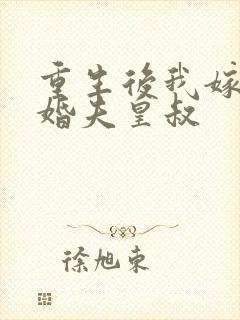 重生後我嫁
婚夫皇叔
徐旭東